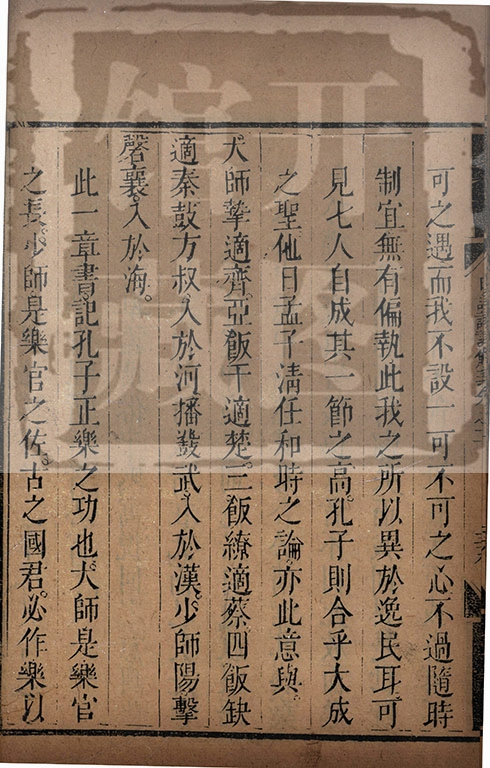 可之遇而我不設一可不可之心不過隨時
制宜無有偏執此我之所以異於逸民耳可
見七人自成其一節之高孔子則合乎大成
之聖他日孟子清任和時之論亦此意與
大師摯適齊亞飯干適楚三飯繚適蔡四飯缺
適秦鼓方叔入於河播鼗武入於漢少師陽擊
磬襄入於海
此一章書記孔子正樂之功也大師是樂官
之長少師是樂官之佐古之國君必作樂以